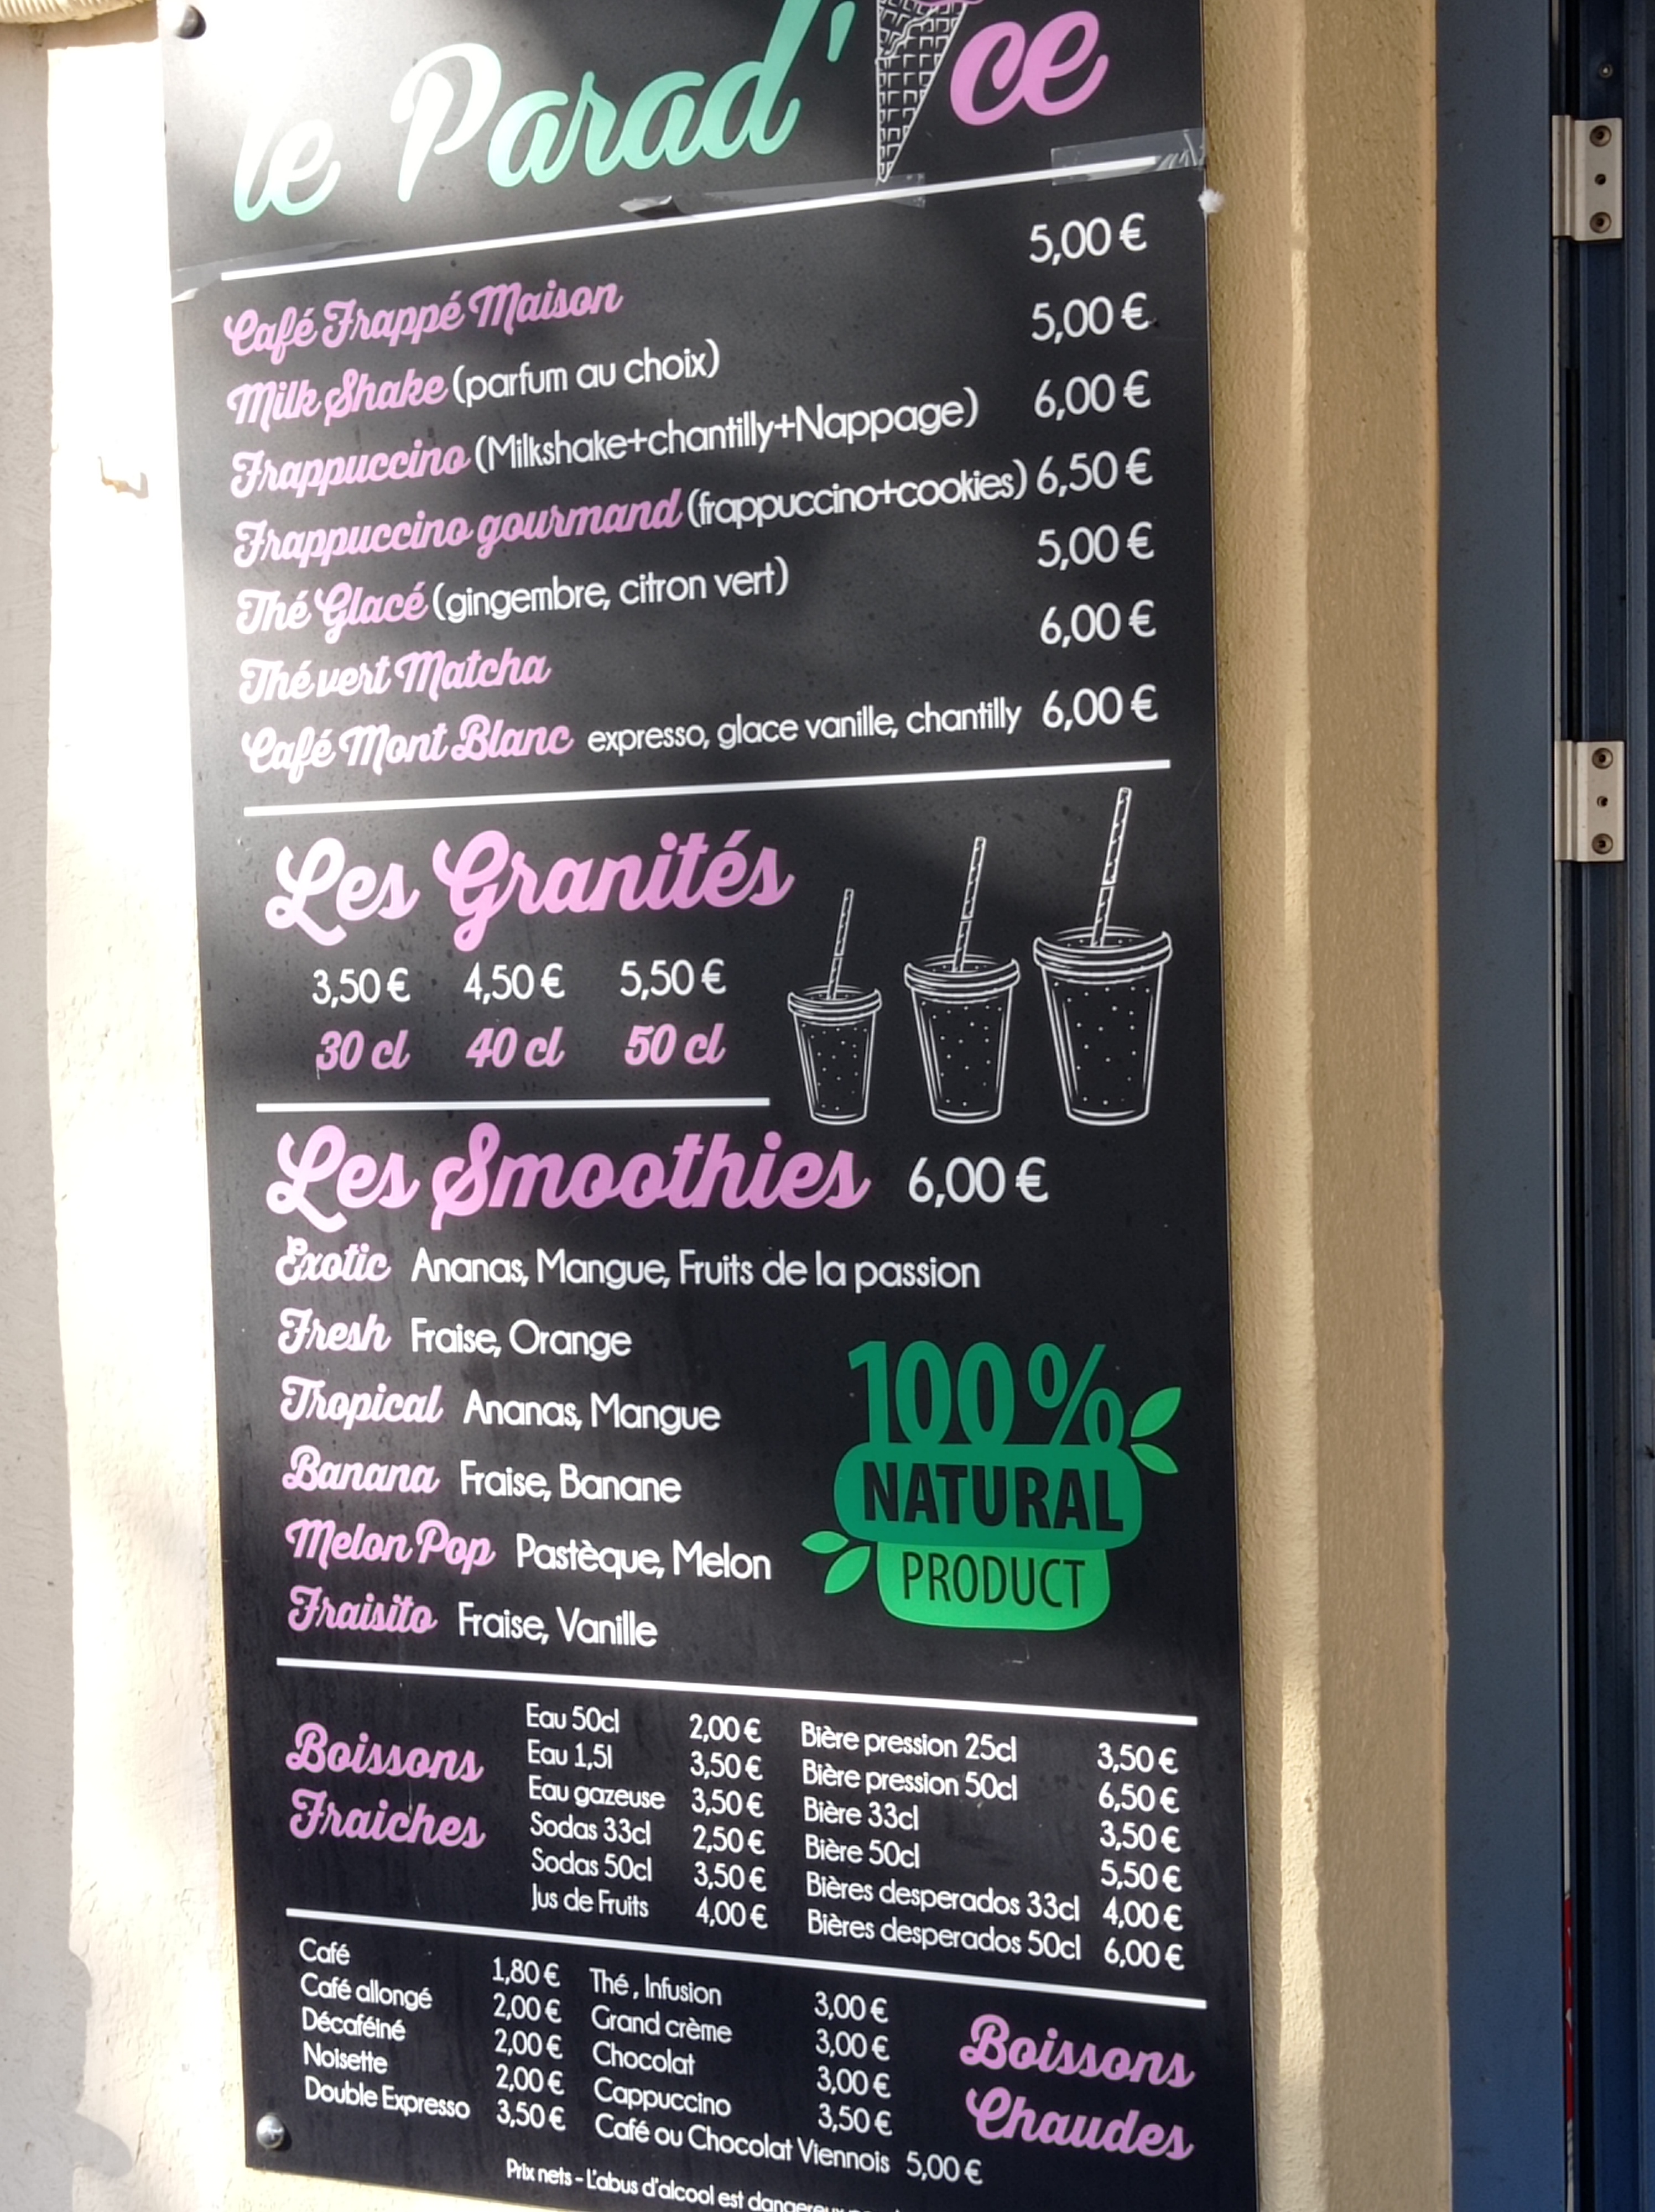 le Parad' ce
Café Frappé Maison 5,00 €
Milk Shake (parfum au choix) 5,00 €
Frappuccino (Milkshake+chantilly+Nappage) 6,00 €
Frappuccino gourmand (frappuccino+cookies) 6,50 €
Thé Glacé (gingembre, citron vert) 5,00 €
Thé vert Matcha 6,00 €
Café Mont Blanc expresso, glace vanille, chantilly 6,00 €
Les Granités
3,50 € 4,50 € 5,50 €
30 cl 40 cl 50 cl
Les Smoothies 6,00 €
Exotic Ananas, Mangue, Fruits de la passion
Fresh Fraise, Orange
Tropical Ananas, Mangue
Banana Fraise, Banane
Melon Pop Pastèque, Melon
Fraisito Fraise, Vanille
100%
NATURAL
PRODUCT
Boissons
Fraiches
Eau 50cl 2,00 €
Eau 1,5l 3,50 €
Eau gazeuse 3,50 €
Sodas 33cl 2,50 €
Sodas 50cl 3,50 €
Jus de Fruits 4,00 €
Bière pression 25cl 3,50 €
Bière pression 50cl 6,50 €
Bière 33cl 3,50 €
Bière 50cl 5,50 €
Bières desperados 33cl 4,00 €
Bières desperados 50cl 6,00 €
Café 1,80 €
Café allongé 2,00 €
Décaféiné 2,00 €
Noisette 2,00 €
Double Expresso 3,50 €
Thé , Infusion 3,00 €
Grand crème 3,00 €
Chocolat 3,00 €
Cappuccino 3,50 €
Café ou Chocolat Viennois 5,00 €
Boissons
Chaudes
Prix nets - L'abus d'alcool est